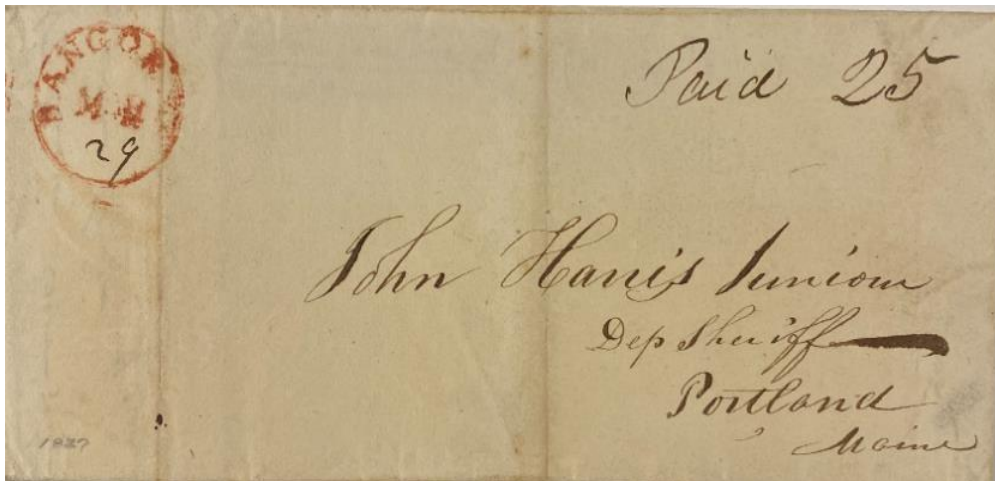 BANGOR
29
Paid 25
John Harris Juniour
Dep Sheriff
Portland
Maine
1837